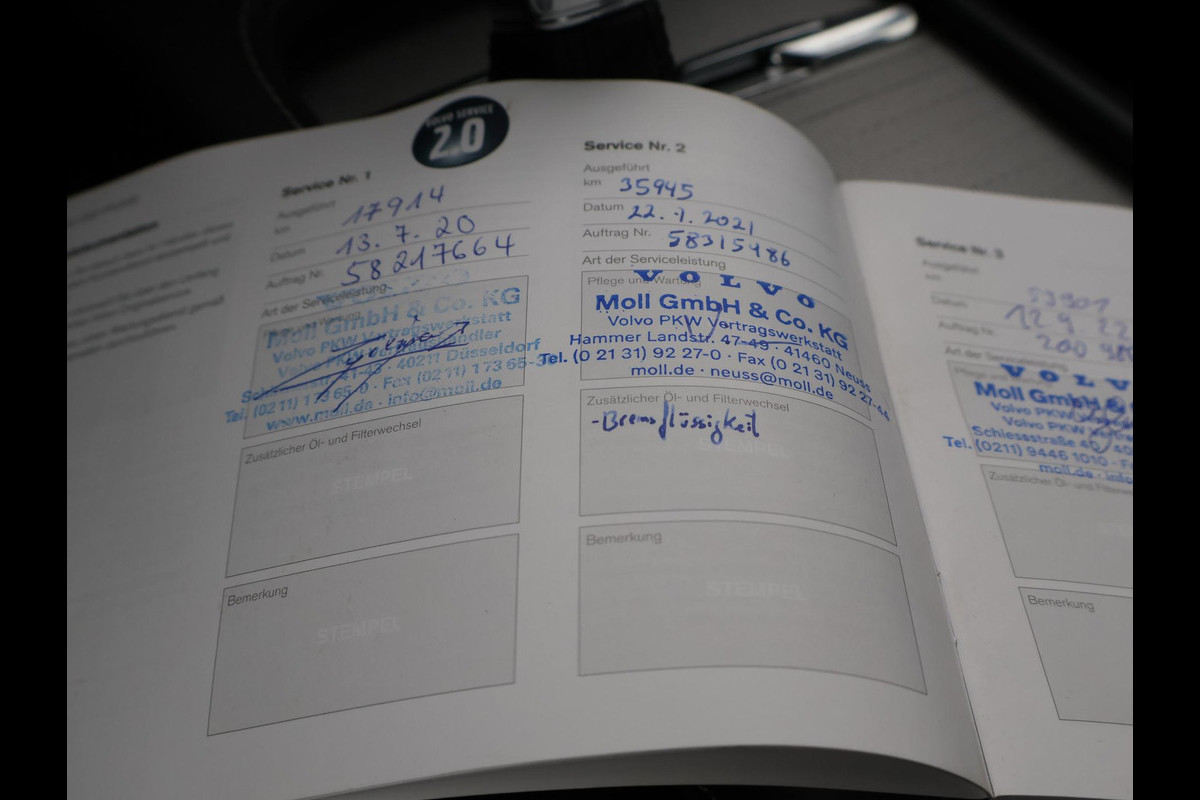 VOLVO SERVICE
2.0
Service Nr. 1
Ausgeführt
km 17914
Datum 13. 7. 20
Auftrag Nr. 58217664
Art der Serviceleistung
Moll GmbH & Co. KG
Volvo PKW Vertragswerkstatt
Volvo PKW
40211 Düsseldorf
Tel. (0211) 173 65-0 · Fax (0211) 173 65-
www.moll.de · info@moll.de
Zusätzlicher Öl- und Filterwechsel
STEMPEL
Bemerkung
STEMPEL
Service Nr. 2
Ausgeführt
km 35945
Datum 22. 7. 2021
Auftrag Nr. 58315486
Art der Serviceleistung
Pflege und Wartung
VOLVO
Moll GmbH & Co. KG
Volvo PKW Vertragswerkstatt
Hammer Landstr. 47-49 · 41460 Neuss
Tel. (0 21 31) 92 27-0 · Fax (0 21 31) 92 27-44
moll.de · neuss@moll.de
Zusätzlicher Öl- und Filterwechsel
-Bremsflüssigkeit
STEMPEL
Bemerkung
STEMPEL
Service Nr. 3
Ausgeführt
km
Datum 12 9 22
Auftrag Nr.
Art der
VOLV
Moll GmbH
Volvo PKW
Volvo PKW
Schiessstraße 40
Tel. (0211) 9446 1010 · F
moll.de · info
Zusätzlicher Öl- und Filterwe
Bemerkung